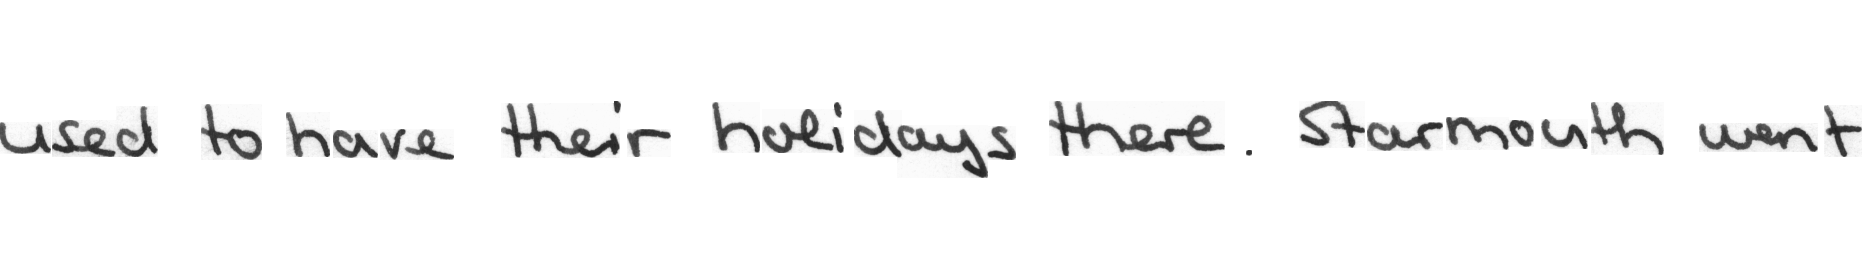 used to have their holidays there. Starmouth went